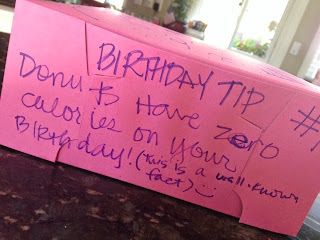 BIRTHDAY TIP #1
Donuts Have zero
calories on your
BIRthday! (this is a well-known
fact) :)